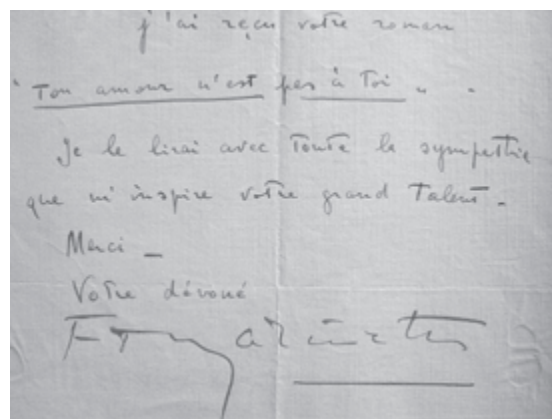 j'ai reçu votre roman
"Ton amour n'est pas à Toi". .
Je le lirai avec Toute la sympathie
que m'inspire votre grand Talent.
Merci –
Votre dévoué
FTMarinetti